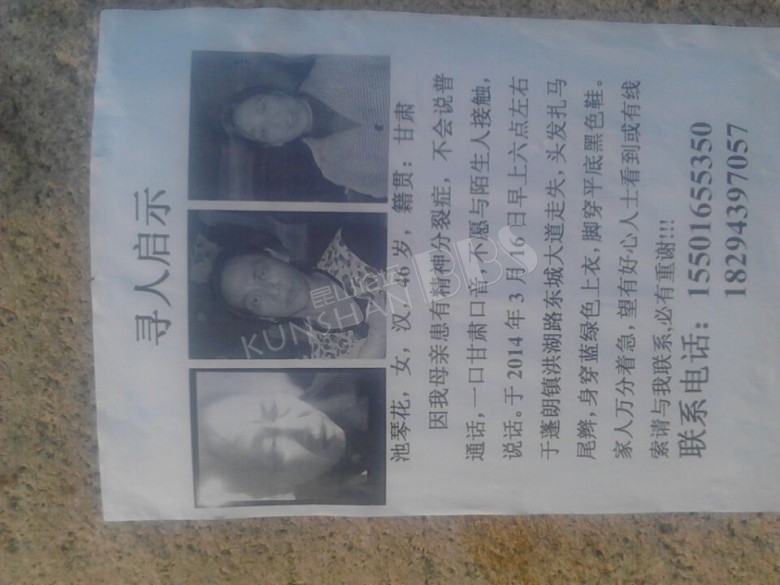 寻人启示
池琴花，女，汉，46岁，籍贯：甘肃
因我母亲患有精神分裂症，不会说普
通话，一口甘肃口音，不愿与陌生人接触，
说话。于2014年3月16日早上六点左右
于蓬朗镇洪湖路东城大道走失，头发扎马
尾辫，身穿蓝绿色上衣，脚穿平底黑色鞋。
家人万分着急，望有好心人士看到或有线
索请与我联系,必有重谢!!!
联系电话：15501655350
18294397057
昆山论坛
KUNSHAN BBS